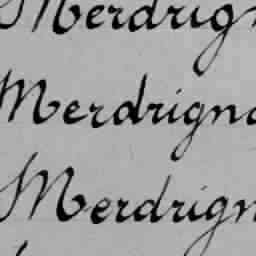 Merdrign
Merdrigna
Merdrign